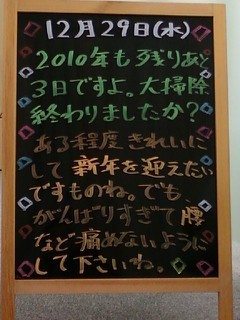 12月29日(水)
2010年も残りあと
3日ですよ。大掃除
終わりましたか?
ある程度きれいに
して新年を迎えたい
ですものね。でも
がんばりすぎて腰
など痛めないように
して下さいね。